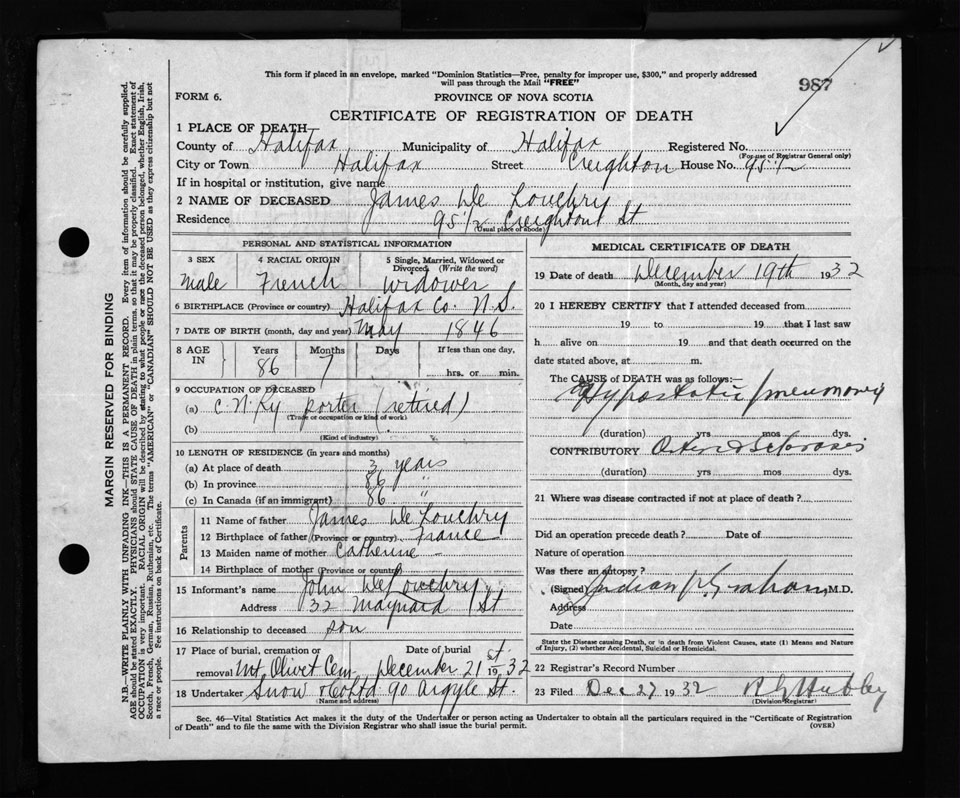 This form if placed in an envelope, marked "Dominion Statistics—Free, penalty for improper use, $300," and properly addressed
will pass through the Mail "FREE"
987
FORM 6.
PROVINCE OF NOVA SCOTIA
CERTIFICATE OF REGISTRATION OF DEATH
1 PLACE OF DEATH
County of Halifax Municipality of Halifax Registered No.
(For use of Registrar General only)
City or Town Halifax Street Creighton House No. 95 1/2
If in hospital or institution, give name
2 NAME OF DECEASED James De Louchry
Residence 95 1/2 Creighton St
(Usual place of abode)
PERSONAL AND STATISTICAL INFORMATION
3 SEX 4 RACIAL ORIGIN 5 Single, Married, Widowed or
Divorced (Write the word)
Male French Widower
6 BIRTHPLACE (Province or country) Halifax Co. N.S.
7 DATE OF BIRTH (month, day and year) May 1846
8 AGE IN Years Months Days If less than one day,
86 7 hrs. or min.
9 OCCUPATION OF DECEASED
(a) C.N.Ry porter (retired)
(Trade or occupation or kind of work)
(b)
(Kind of industry)
10 LENGTH OF RESIDENCE (in years and months)
(a) At place of death 3 years
(b) In province 86 "
(c) In Canada (if an immigrant) 86 "
Parents
11 Name of father James De Louchry
12 Birthplace of father (Province or country) France
13 Maiden name of mother Catherine —
14 Birthplace of mother (Province or country)
15 Informant's name John DeLouchry
Address 32 Maynard St
16 Relationship to deceased son
17 Place of burial, cremation or Date of burial
removal Mt Olivet Cem. December 21st 1932
18 Undertaker Snow & Co Ltd 90 Argyle St.
(Name and address)
MEDICAL CERTIFICATE OF DEATH
19 Date of death December 19th 1932
(Month, day and year)
20 I HEREBY CERTIFY that I attended deceased from
19 to 19 that I last saw
h alive on 19 and that death occurred on the
date stated above, at m.
The CAUSE of DEATH was as follows:
Hypostatic pneumonia
(duration) yrs mos dys.
CONTRIBUTORY Arteriosclerosis
(duration) yrs mos dys.
21 Where was disease contracted if not at place of death?
Did an operation precede death? Date of
Nature of operation
Was there an autopsy?
(Signed) Graham M.D.
Address
Date
State the Disease causing Death, or in death from Violent Causes, state (1) Means and Nature
of Injury, (2) whether Accidental, Suicidal or Homicidal.
22 Registrar's Record Number
23 Filed Dec 27 1932
(Division Registrar)
Sec. 46—Vital Statistics Act makes it the duty of the Undertaker or person acting as Undertaker to obtain all the particulars required in the "Certificate of Registration
of Death" and to file the same with the Division Registrar who shall issue the burial permit.
(OVER)
MARGIN RESERVED FOR BINDING
N.B.—WRITE PLAINLY WITH UNFADING INK—THIS IS A PERMANENT RECORD. Every item of information should be carefully supplied.
AGE should be stated EXACTLY. PHYSICIANS should STATE CAUSE OF DEATH in plain terms, so that it may be properly classified. Exact statement of
OCCUPATION is very important. RACIAL ORIGIN will be described by stating to what people or race the deceased person belonged, whether English, Irish,
Scotch, French, German, Russian, Ruthenian, etc. The terms "AMERICAN" or "CANADIAN" SHOULD NOT BE USED as they express citizenship but not
a race or people. See instructions on back of Certificate.